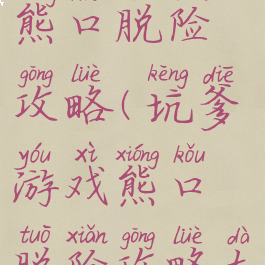 熊口脱险
gōng lüè kēng diē
攻略(坑爹
yóu xì xióng kǒu
游戏熊口
tuō xiǎn gōng lüè dà
脱险攻略大